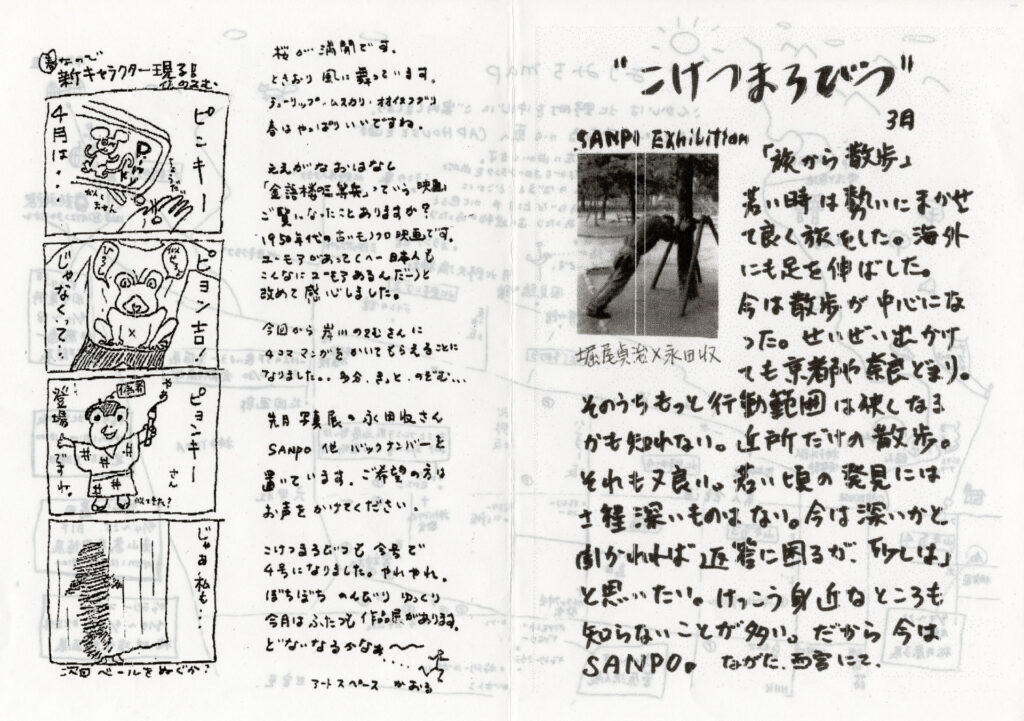 "こけつまろびつ"
3月
SANPO Exhibition
堀尾貞治×永田收
「旅から散歩」
若い時は勢いにまかせ
て良く旅をした。海外
にも足を伸ばした。
今は散歩が中心にな
った。せいぜい出かけ
ても京都や奈良どまり。
そのうちもっと行動範囲は狭くなる
かも知れない。近所だけの散歩。
それも又良い。若い頃の発見には
さ程深いものはない。今は深いかと
聞かれれば返答に困るが、「少しは」
と思いたい。けっこう身近なところも
知らないことが多い。だから今は
SANPO。 ながた、西宮にて。
桜が満開です。
ときおり風に舞っています。
チューリップ・ムスカリ・オオイヌフグリ
春はやっぱりいいですね。
ええがなおはなし
「金語楼の三等兵」っていう映画
ご覧になったことありますか?
1950年代の古いモノクロ映画です。
ユーモアがあってくへー日本人も
こんなにユーモアあるんだー)と
改めて感心しました。
今回から岸川のぞむさんに
4コママンガをかいてもらえることに
なりました。。多分、きっと、のぞむ…
先月写真展の永田收さん
SANPO 他 バックナンバーを
置いています。ご希望の方は
お声をかけてください。
こけつまろびつも今号で
4号になりました。やれやれ。
ぼちぼち のんびり ゆっくり
今月はふたつも作品展があります。
どないなるかなぁ〜
アートスペース かおる
春なので
新キャラクター現る!!
ピンキー
4月は・・
ピョン吉!
じゃなくって・
ピョンキー
さん
やあ
登場ですね。
似てきた?
じゃあ私も・・
次回ベールをぬぐか?